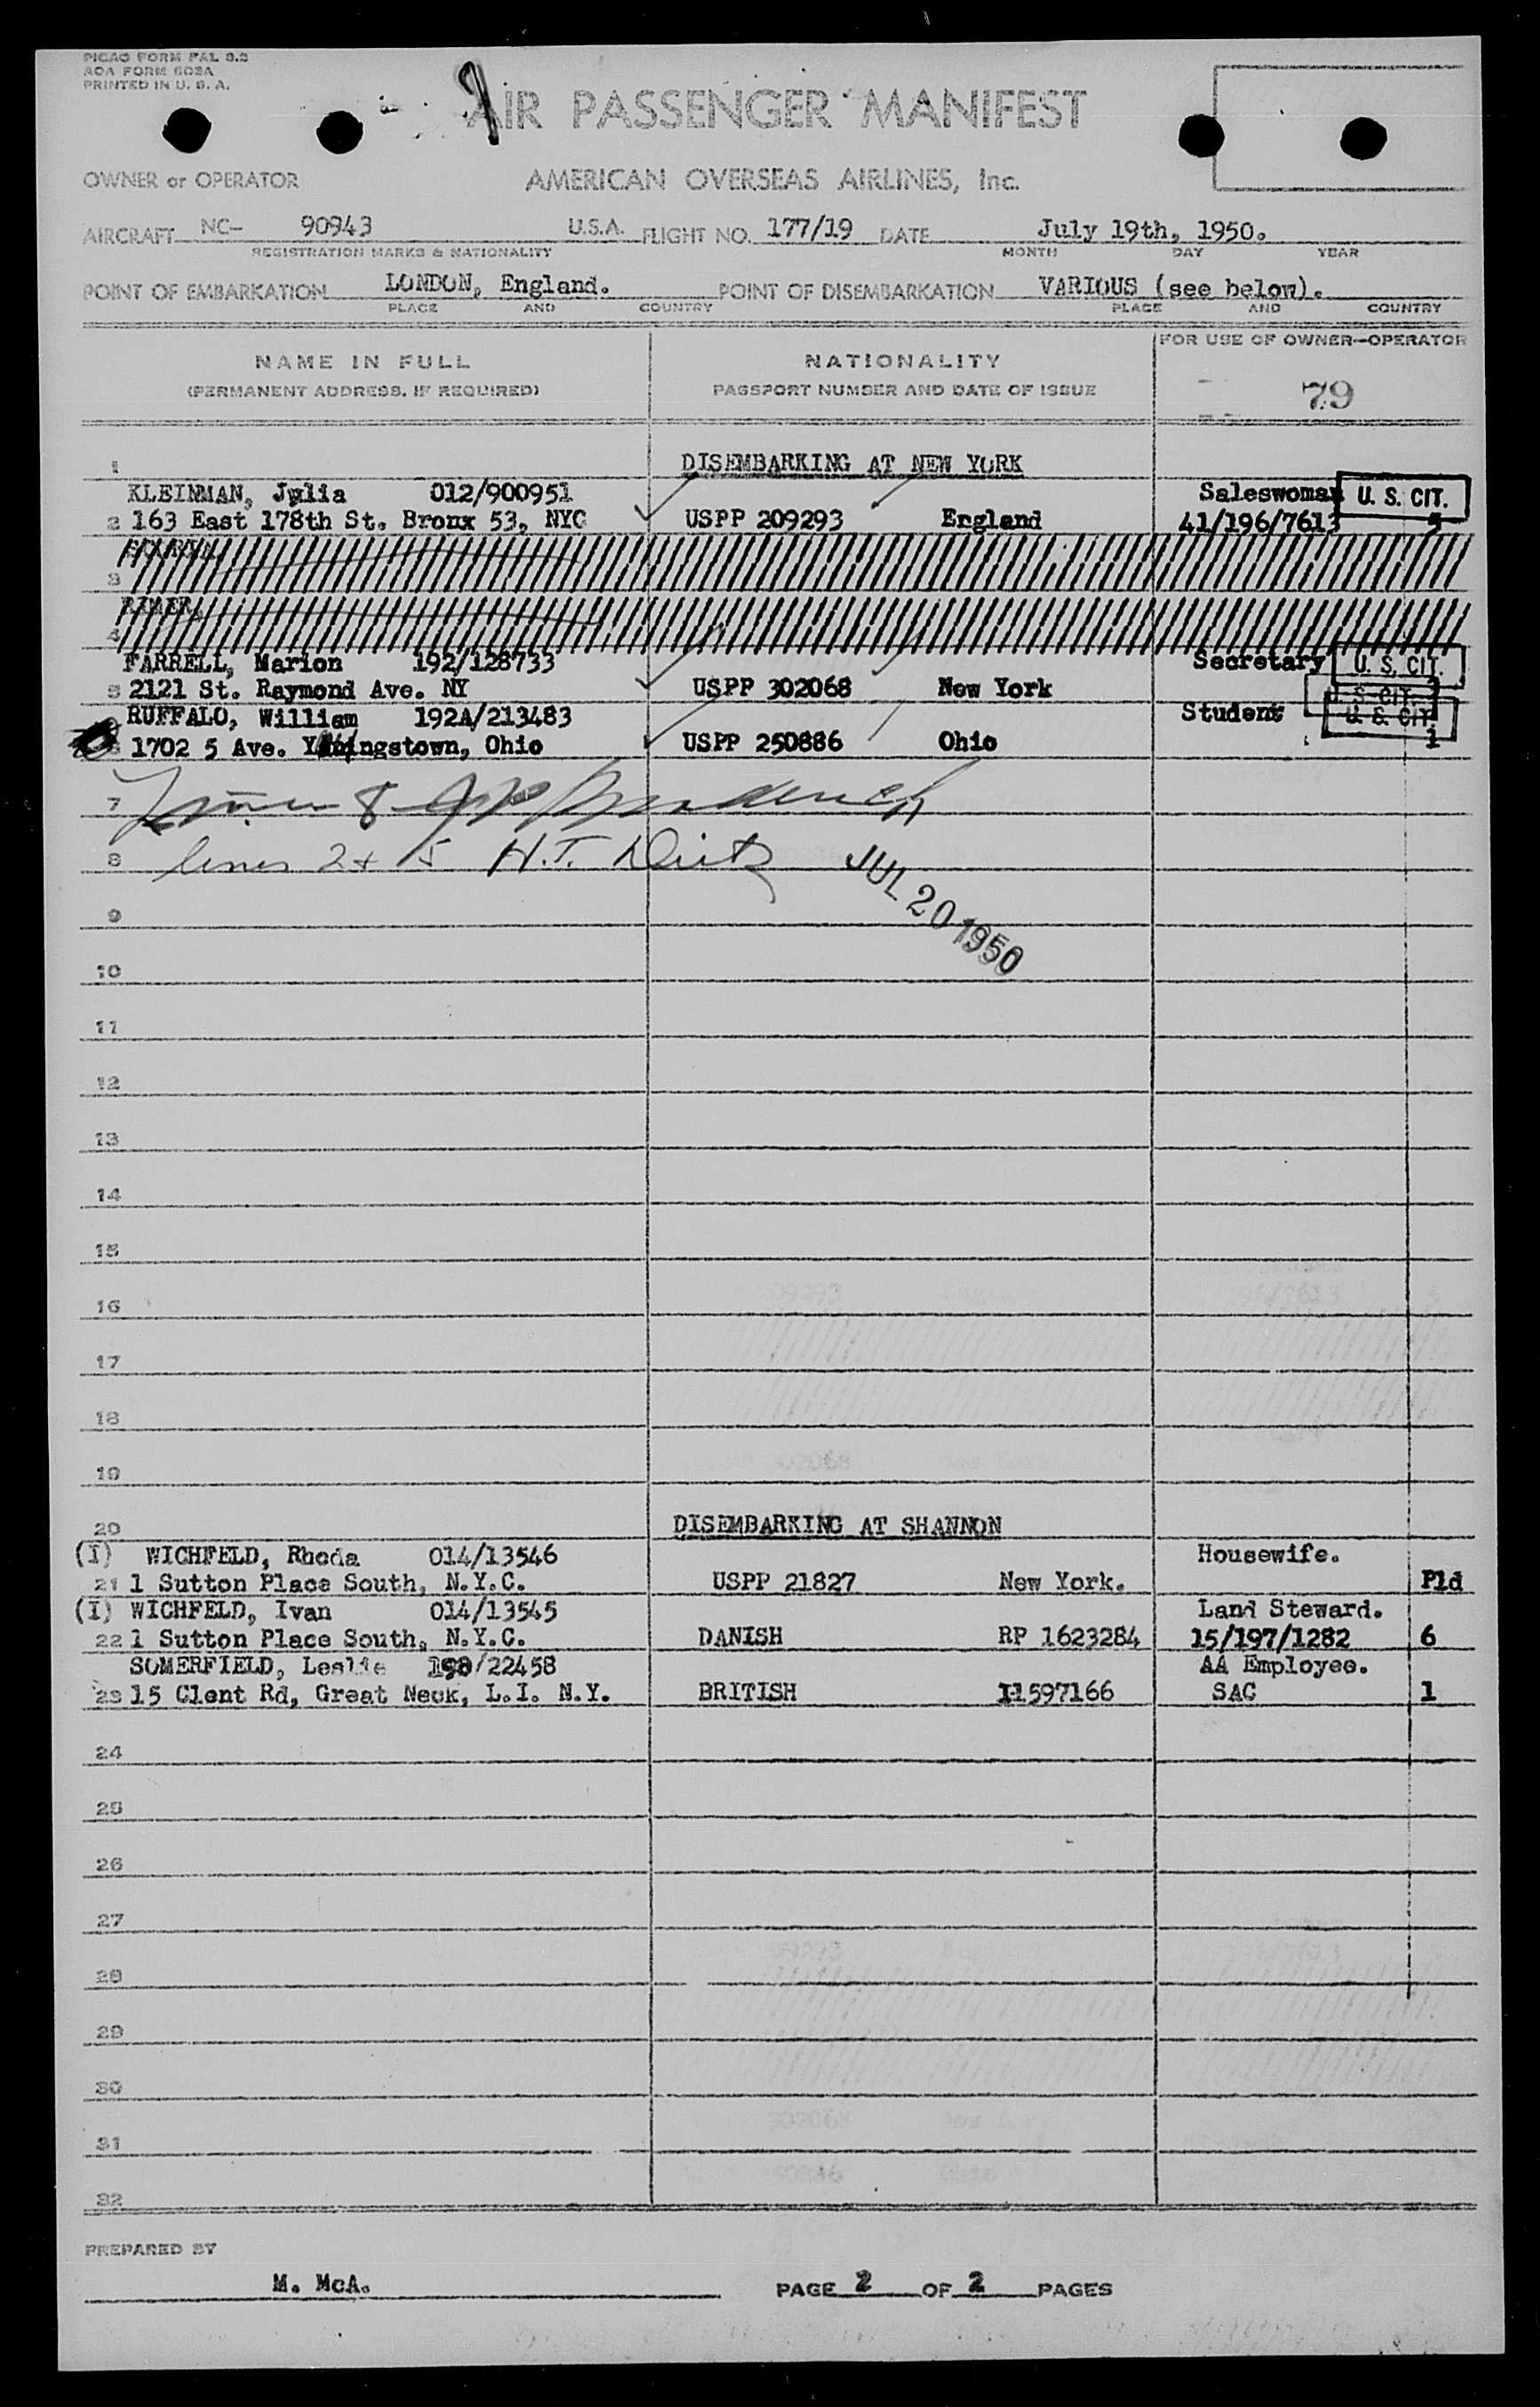 PICAO FORM FAL 3.3
AOA FORM 603A
PRINTED IN U. S. A.
AIR PASSENGER MANIFEST
OWNER or OPERATOR AMERICAN OVERSEAS AIRLINES, Inc.
AIRCRAFT NC- 90943 U.S.A. FLIGHT NO. 177/19 DATE July 19th, 1950.
REGISTRATION MARKS & NATIONALITY MONTH DAY YEAR
POINT OF EMBARKATION LONDON, England. POINT OF DISEMBARKATION VARIOUS (see below).
PLACE AND COUNTRY PLACE AND COUNTRY
NAME IN FULL NATIONALITY FOR USE OF OWNER-OPERATOR
(PERMANENT ADDRESS, IF REQUIRED) PASSPORT NUMBER AND DATE OF ISSUE 79
1 DISEMBARKING AT NEW YORK
KLEINMAN, Julia 012/900951 Saleswoman U. S. CIT.
2 163 East 178th St. Bronx 53, NYC USPP 209293 England 41/196/7613 5
3
4
FARRELL, Marion 192/128733 Secretary U. S. CIT.
5 2121 St. Raymond Ave. NY USPP 302068 New York U. S. CIT.
RUFFALO, William 192A/213483 Student U. S. CIT.
1702 5 Ave. Youngstown, Ohio USPP 250886 Ohio 1
7
8 lines 2 + 5 H.T. JUL 20 1950
9
10
11
12
13
14
15
16
17
18
19
20 DISEMBARKING AT SHANNON
(I) WICHFELD, Rhoda 014/13546 Housewife.
21 1 Sutton Place South, N.Y.C. USPP 21827 New York. Pld
(I) WICHFELD, Ivan 014/13545 Land Steward.
22 1 Sutton Place South, N.Y.C. DANISH RP 1623284 15/197/1282 6
SOMERFIELD, Leslie 198/22458 AA Employee.
23 15 Clent Rd, Great Neck, L.I. N.Y. BRITISH I1597166 SAC 1
24
25
26
27
28
29
30
31
32
PREPARED BY
M. McA. PAGE 2 OF 2 PAGES